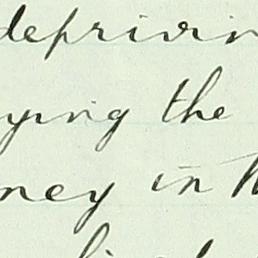 deprivin
ying the
ney in